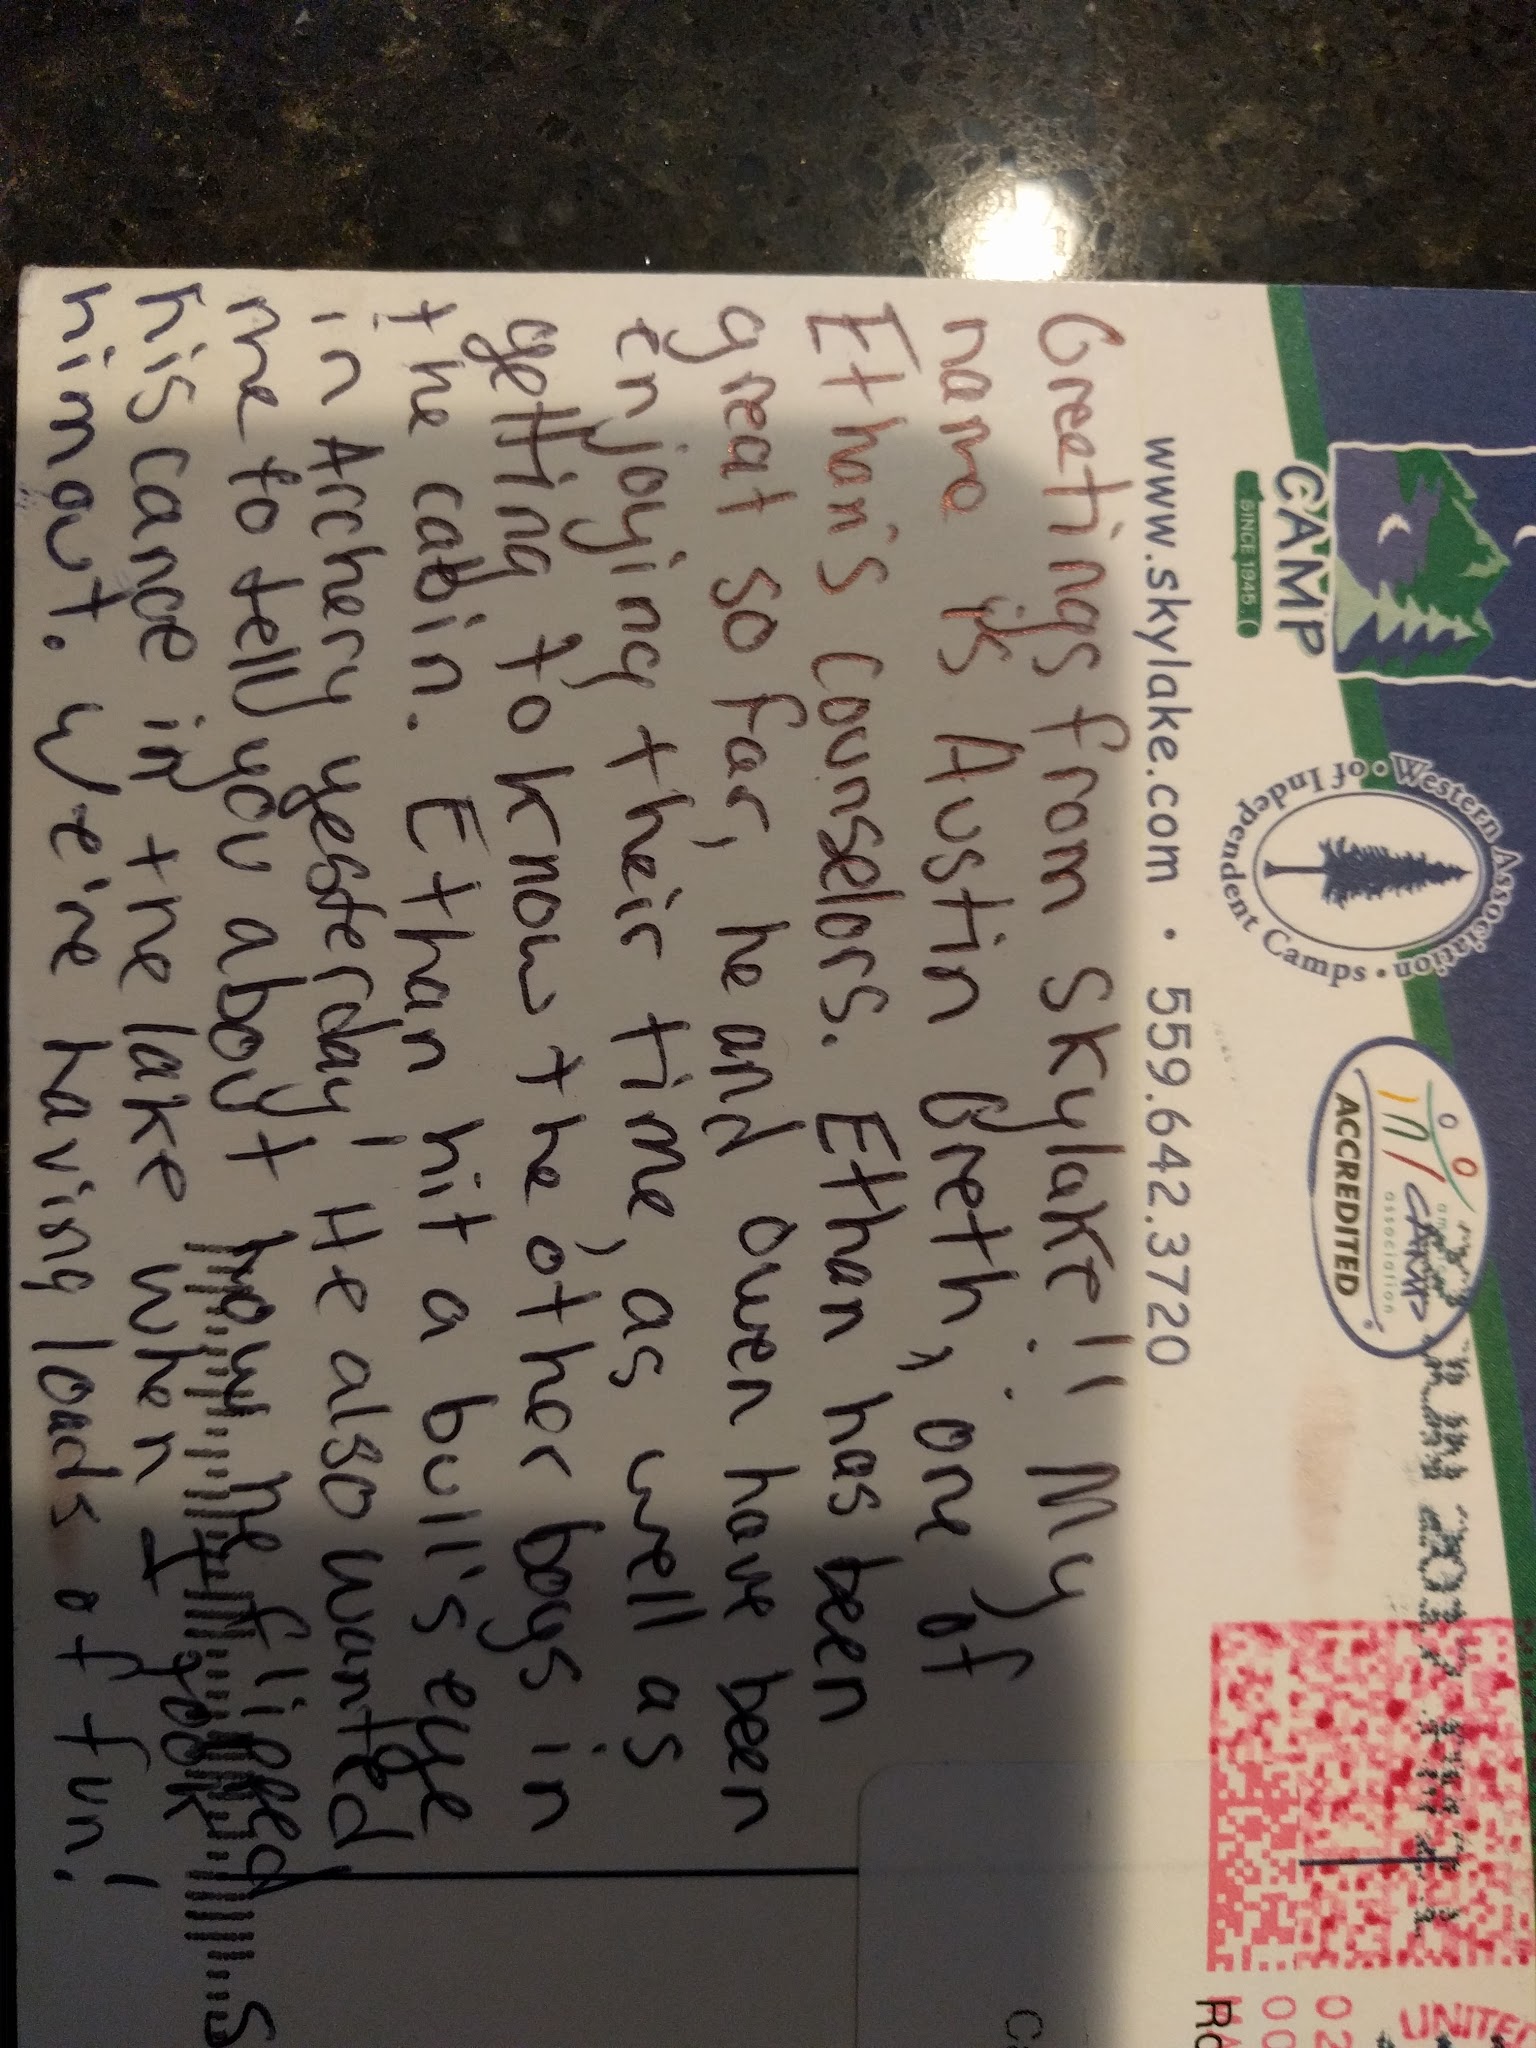 CAMP
SINCE 1945
Western Association
of Independent Camps
association
ACCREDITED
www.skylake.com • 559.642.3720
UNITED
02
00
Greetings from Skylake!! My
name is Austin Greth, one of
Ethan's counselors. Ethan has been
great so far, he and Owen have been
enjoying their time, as well as
getting to know the other boys in
the cabin. Ethan hit a bull's eye
in Archery yesterday! He also wanted
me to tell you about how he flipped
his canoe in the lake when I took
him out. We're having loads of fun!